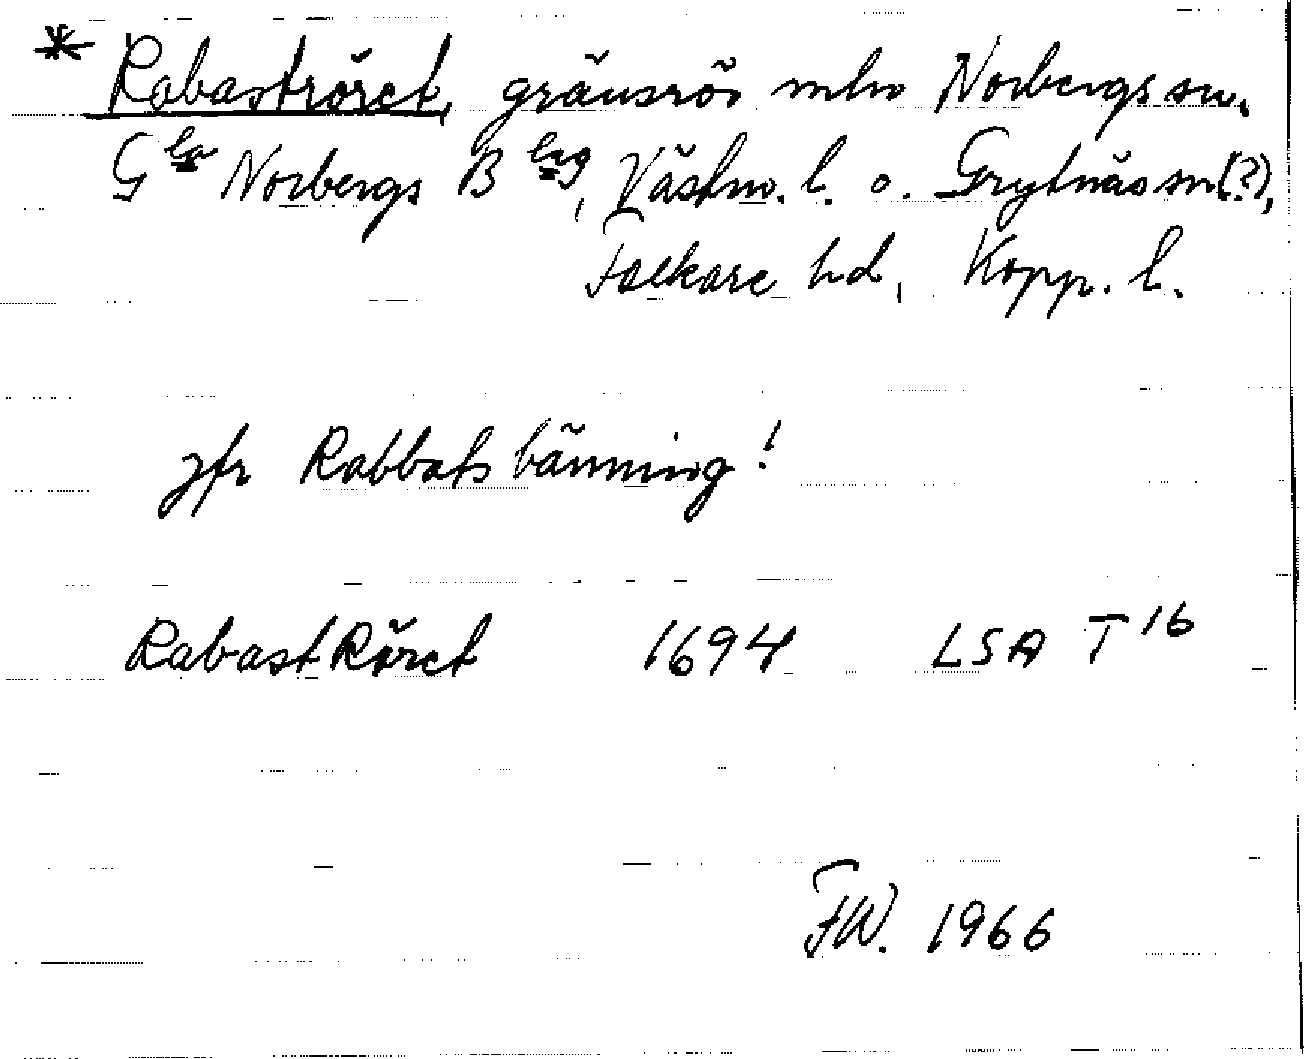 * Rabaströret, gränsrös mln Norbergs sn.
Gla Norbergs Blag, Västm. l. o. Grytnäs sn(?),
Folkare hd, Kopp. l.
jfr Rabbatsbänning!
RabastRöret 1694 LSA T 16
FW. 1966